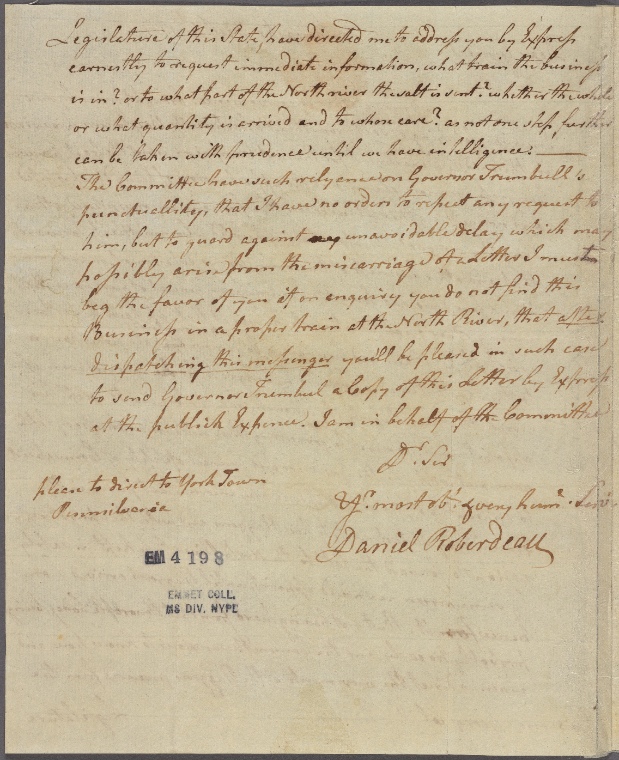 Legislature of this State, have directed me to address you by Express
earnestly to request immediate information, what train the business
is in? or to what part of the North river the salt is sent? whether the whole
or what quantity is arrived and to whose care? as not one step further
can be taken with prudence until we have intelligence.
The Committee have such relyance on Governor Trumbull's
punctuallity, that I have no orders to repeat any request to
him, but to guard against unavoidable delay which may
possibley arise from the miscarriage of a Letter I must
beg the favor of you if on enquiry you do not find this
Business in a proper train at the North River, that after
dispatching this messenger you'll be pleased in such case
to send Governor Trumbul a Copy of this Letter by Express
at the publick Expence. I am in behalf of the Committee
Dr. Sir
Yr. most obt. & very hum. Serv.
Daniel Roberdeau
please to direct to York Town
Pennsilvania
EM 4198
EMMET COLL.
MS DIV. NYPL